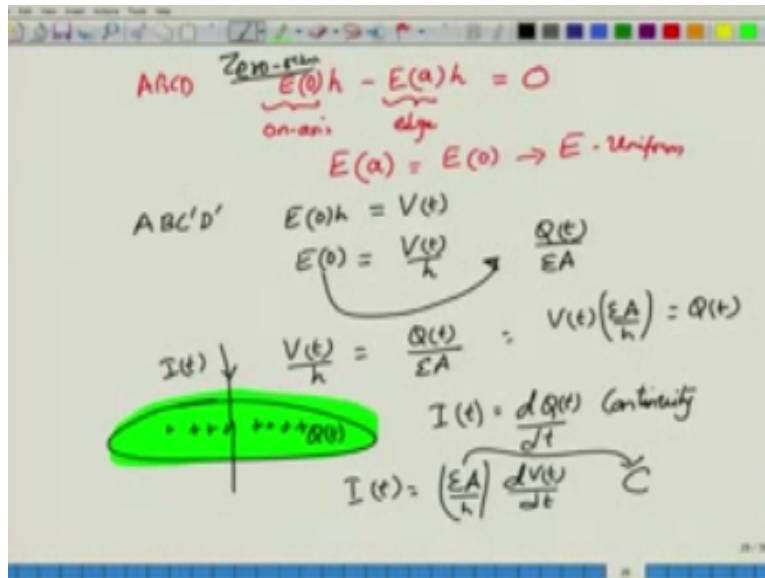 Zero-
ABCD E(0)h - E(a)h = 0
on-axis edge
E(a) = E(0) → E - Uniform
ABC'D' E(0)h = V(t)
E(0) = V(t)/h Q(t)/εA
V(t)/h = Q(t)/εA = V(t)(εA/h) = Q(t)
I(t)
+ +++ ++++ Q(t)
I(t) = dQ(t)/dt Continuity
I(t) = (εA/h) dV(t)/dt C